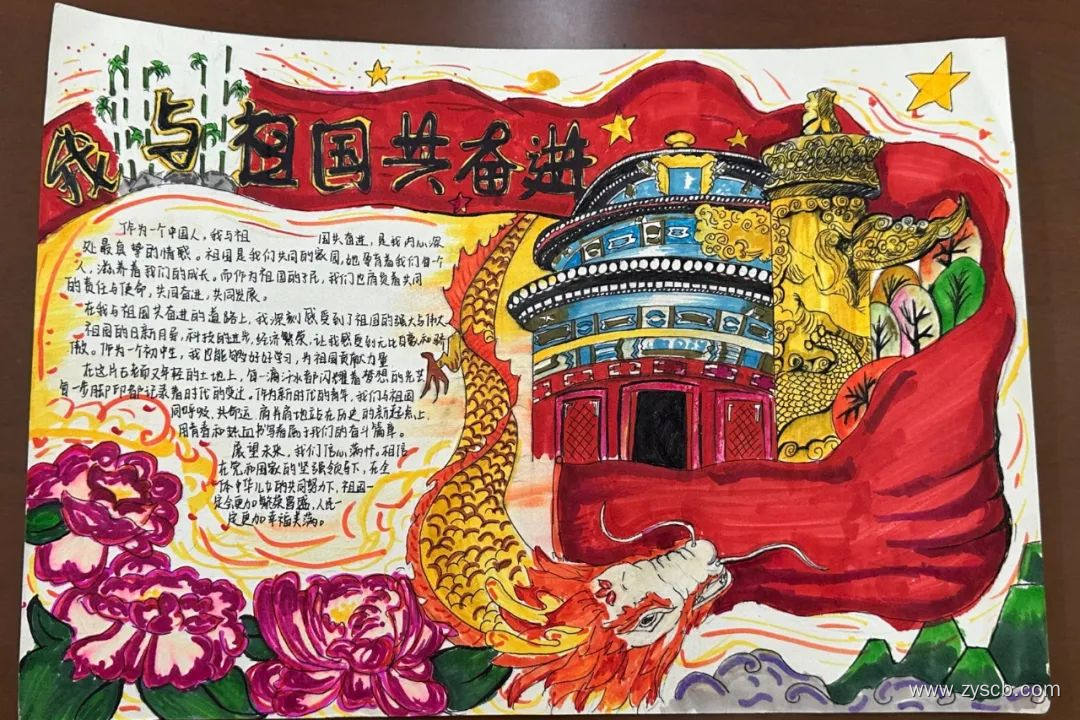 我与祖国共奋进
作为一个中国人，我与祖 国共奋进，是我内心深
处最真挚的情感。祖国是我们共同的家园，她孕育着我们每一个
人，滋养着我们的成长。而作为祖国的子民，我们也肩负着共同
的责任与使命，共同奋进，共同发展。
在我与祖国共奋进的道路上，我深刻感受到了祖国的强大与伟大
祖国的日新月异，科技的进步，经济繁荣，让我感受到无比自豪和骄
傲。作为一个初中生，我也能够好好学习，为祖国贡献力量
在这片古老而又年轻的土地上，每一滴汗水都闪耀着梦想的光芒
每一步脚印都记录着时代的变迁。作为新时代的青年，我们与祖国
同呼吸、共命运，肩并肩地站在历史的新起点上，
用青春和热血书写着属于我们的奋斗篇章。
展望未来，我们信心满怀。相信
在党和国家的坚强领导下，在全
体中华儿女的共同努力下，祖国一
定会更加繁荣昌盛，人民一
定更加幸福美满。
www.zyscb.com